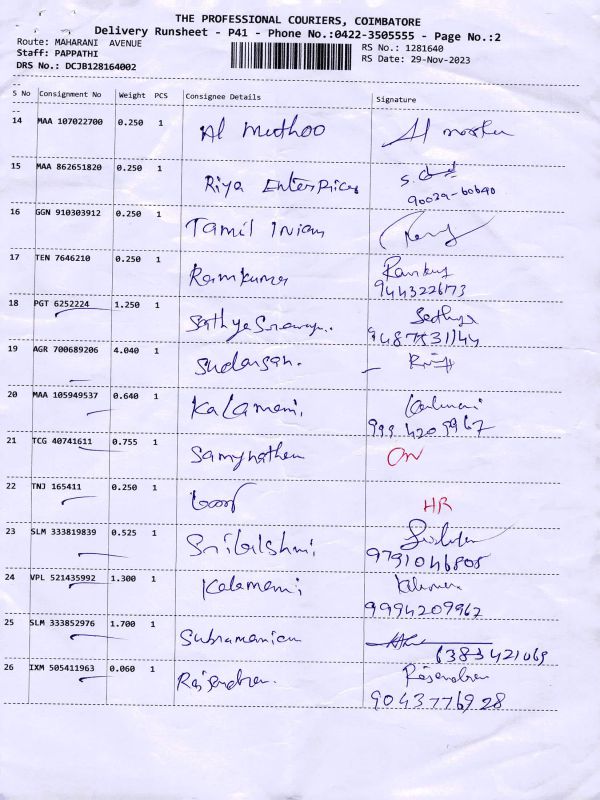 THE PROFESSIONAL COURIERS, COIMBATORE
Delivery Runsheet - P41 - Phone No.:0422-3505555 - Page No.:2
Route: MAHARANI AVENUE
Staff: PAPPATHI
DRS No.: DCJB128164002
RS No.: 1281640
RS Date: 29-Nov-2023
S No Consignment No Weight PCS Consignee Details Signature
14 MAA 107022700 0.250 1 Al Muthoo Al
15 MAA 862651820 0.250 1 Riya Enterprices S.
90029-60690
16 GGN 910303912 0.250 1 Tamil
17 TEN 7646210 0.250 1 Ramkumar
9443226173
18 PGT 6252224 1.250 1 Sathya
9487531144
19 AGR 700689206 4.040 1 Sudarsan.
20 MAA 105949537 0.640 1 Kalamani Kalamani
9994209967
21 TCG 40741611 0.755 1 Samynathen ON
22 TNJ 165411 0.250 1 HR
23 SLM 333819839 0.525 1
9791046808
24 VPL 521435992 1.300 1 Kalamani
9994209967
25 SLM 333852976 1.700 1 Subramaniam
6383421069
26 IXM 505411963 0.060 1 Rajendran. Rajendran
9043776928